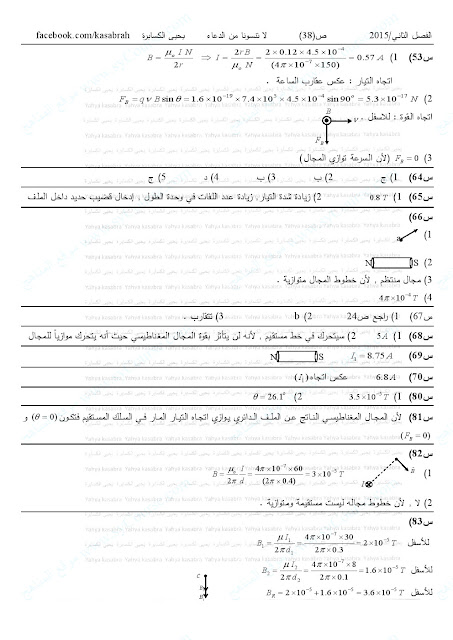 الفصل الثاني/2015 ص(38) لا تنسونا من الدعاء يحيى الكسابرة facebook.com/kasabrah
س53) 1) B = μ₀ I N / 2r ⇒ I = 2rB / μ₀ N = 2 × 0.12 × 4.5 × 10⁻⁴ / (4π × 10⁻⁷ × 150) = 0.57 A
اتجاه التيار : عكس عقارب الساعة .
2) F_B = q v B sin θ = 1.6 × 10⁻¹⁹ × 7.4 × 10⁵ × 4.5 × 10⁻⁴ sin 90° = 5.3 × 10⁻¹⁷ N
اتجاه القوة : للأسفل . B v F_B
3) F_B = 0 (لأن السرعة توازي المجال)
س64) 1) ج 2) ب 3) ب 4) د 5) ج
س65) 1) 0.8 T 2) زيادة شدة التيار، زيادة عدد اللفات في وحدة الطول , إدخال قضيب حديد داخل الملف
س66)
1) a
2) N S
3) مجال منتظم , لأن خطوط المجال متوازية .
4) 4π × 10⁻⁴ T
س67) 1) راجع ص24 2) b 3) تتقارب .
س68) 1) 5 A 2) سيتحرك في خط مستقيم , لأنه لن يتأثر بقوة المجال المغناطيسي حيث أنه يتحرك موازياً للمجال
س69) I₁ = 8.75 A N S
س70) 6.8 A عكس اتجاه (I₁)
س80) 1) 3.5 × 10⁻⁵ T 2) θ = 26.1°
س81) لأن المجال المغناطيسي الناتج عن الملف الدائري يوازي اتجاه التيار المار في السلك المستقيم فتكون (θ = 0) و
(F_B = 0)
س82)
1) B = μ₀ I / 2π d = 4π × 10⁻⁷ × 60 / (2π × 0.4) = 3 × 10⁻⁵ T I B
2) لا , لأن خطوط مجاله ليست مستقيمة ومتوازية .
س83)
للأسفل B₁ = μ I₁ / 2π d₁ = 4π × 10⁻⁷ × 30 / 2π × 0.3 = 2 × 10⁻⁵ T
للأسفل B₂ = μ I₂ / 2π d₂ = 4π × 10⁻⁷ × 8 / 2π × 0.1 = 1.6 × 10⁻⁵ T
للأسفل B_R = 2 × 10⁻⁵ + 1.6 × 10⁻⁵ = 3.6 × 10⁻⁵ T C